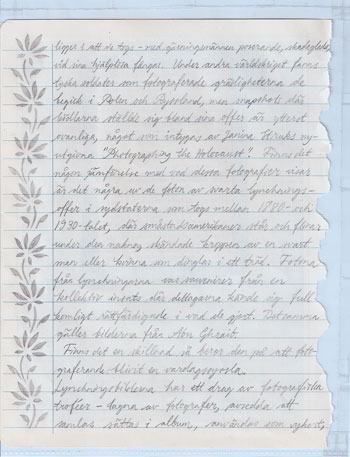 ligger i att de togs - med gärningsmännen poserande, skadeglada,
vid sina hjälplösa fångar. Under andra världskriget fanns
tyska soldater som fotograferade grymligheterna de
begick i Polen och Ryssland, men snapshots där
bödlarna ställde sig bland sina offer är ytterst
ovanliga, något som intygas av Janina Struks ny-
utgivna "Photographing the Holocaust". Finns det
någon jämförelse med vad dessa fotografier visar
är det några av de foton av svarta lynchnings-
offer i sydstaterna som togs mellan 1880- och
1930-talet, där småstadsamerikaner står och flinar
under den nakna skändade kroppen av en svart
man eller kvinna som dinglar i ett träd. Fotona
från lynchningarna var souvenirer från en
kollektiv insats där deltagarna kände sig full-
komligt rättfärdigade i vad de gjort. Detsamma
gäller bilderna från Abu Ghraib.
Finns det en skillnad så beror den på att fotо-
graferande blivit en vardagssyssla.
Lynchningsbilderna har ett drag av fotografiska
troféer - tagna av fotografer, avsedda att
samlas, sättas i album, användas som vykort,